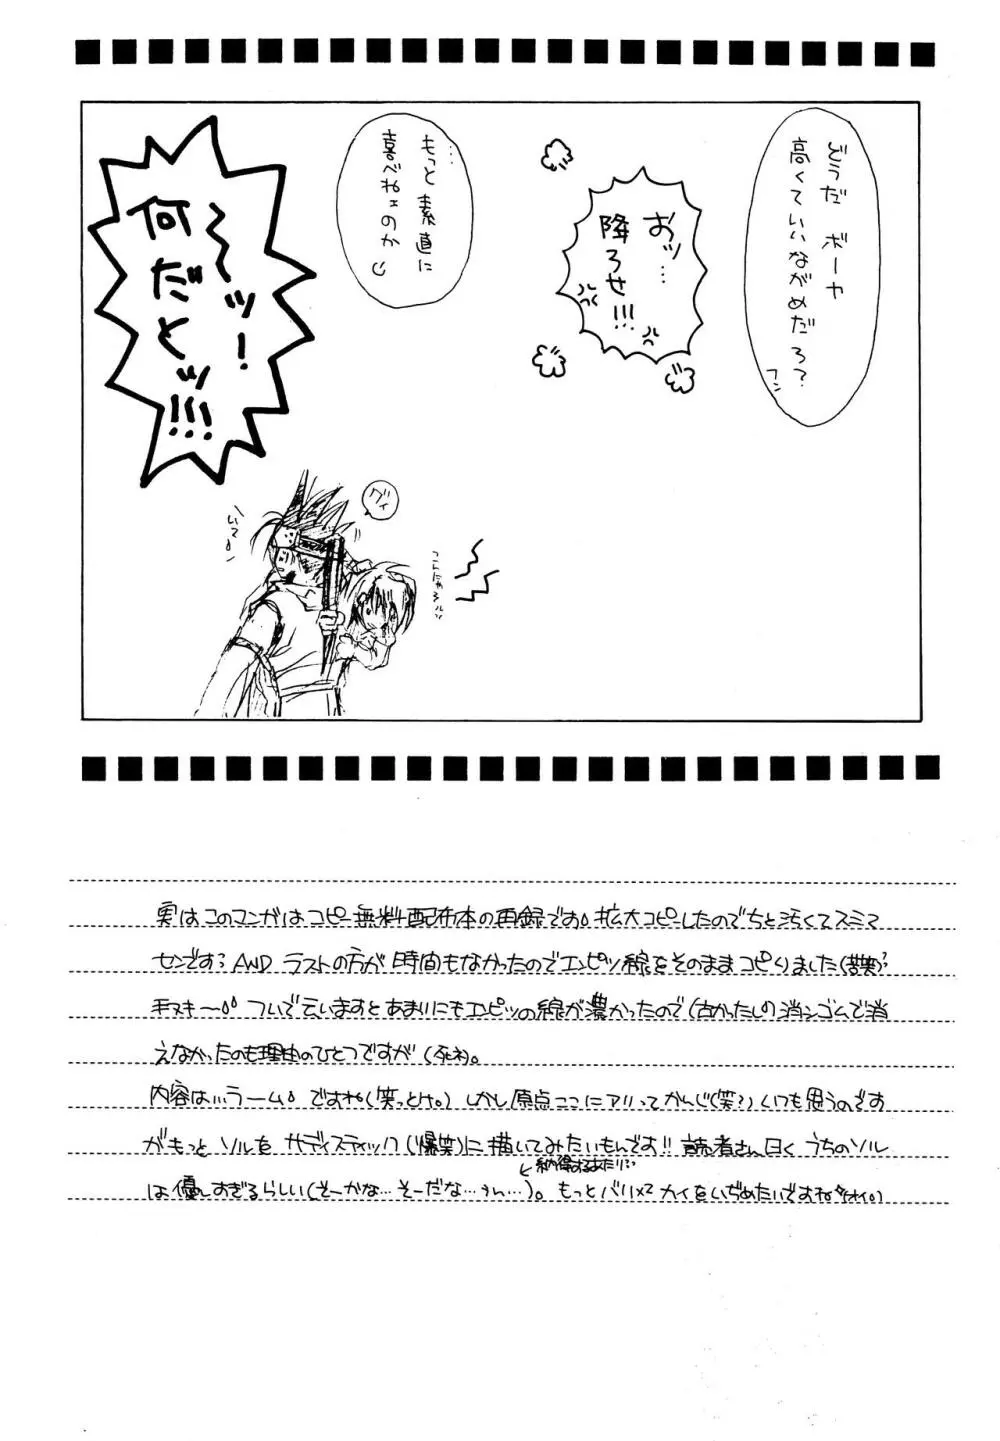 どうだ ボーヤ
高くていいながめだろ?
フン
おッ…
降ろせ!!!
…もっと素直に
喜べねェのか
〜〜ッ!
何だとッ!!!
グイ
いてっ
実はこのマンガはコピー無料配布本の再録です。拡大コピーしたのでちと汚くてスミマ
センです? AND ラストの方が時間もなかったのでエンピツ線をそのままコピりました(苦笑)?
手ヌキ〜 ついで云いますとあまりにもエンピツの線が濃かったので(古かったし)消シゴムで消
えなかったのも理由のひとつですが(死ネ)。
内容は…ラーム。ですね(笑っとけ。)しかし原点ここにアリってかんじ(笑?)いつも思うのです
がもっとソルをサディスティック(爆笑)に描いてみたいもんです!! 読者さん曰くうちのソル
納得するあたり…
は優しすぎるらしい(そーかな…そーだな…うん…)。もっとバリバリカイをいぢめたいですね(オイ。)